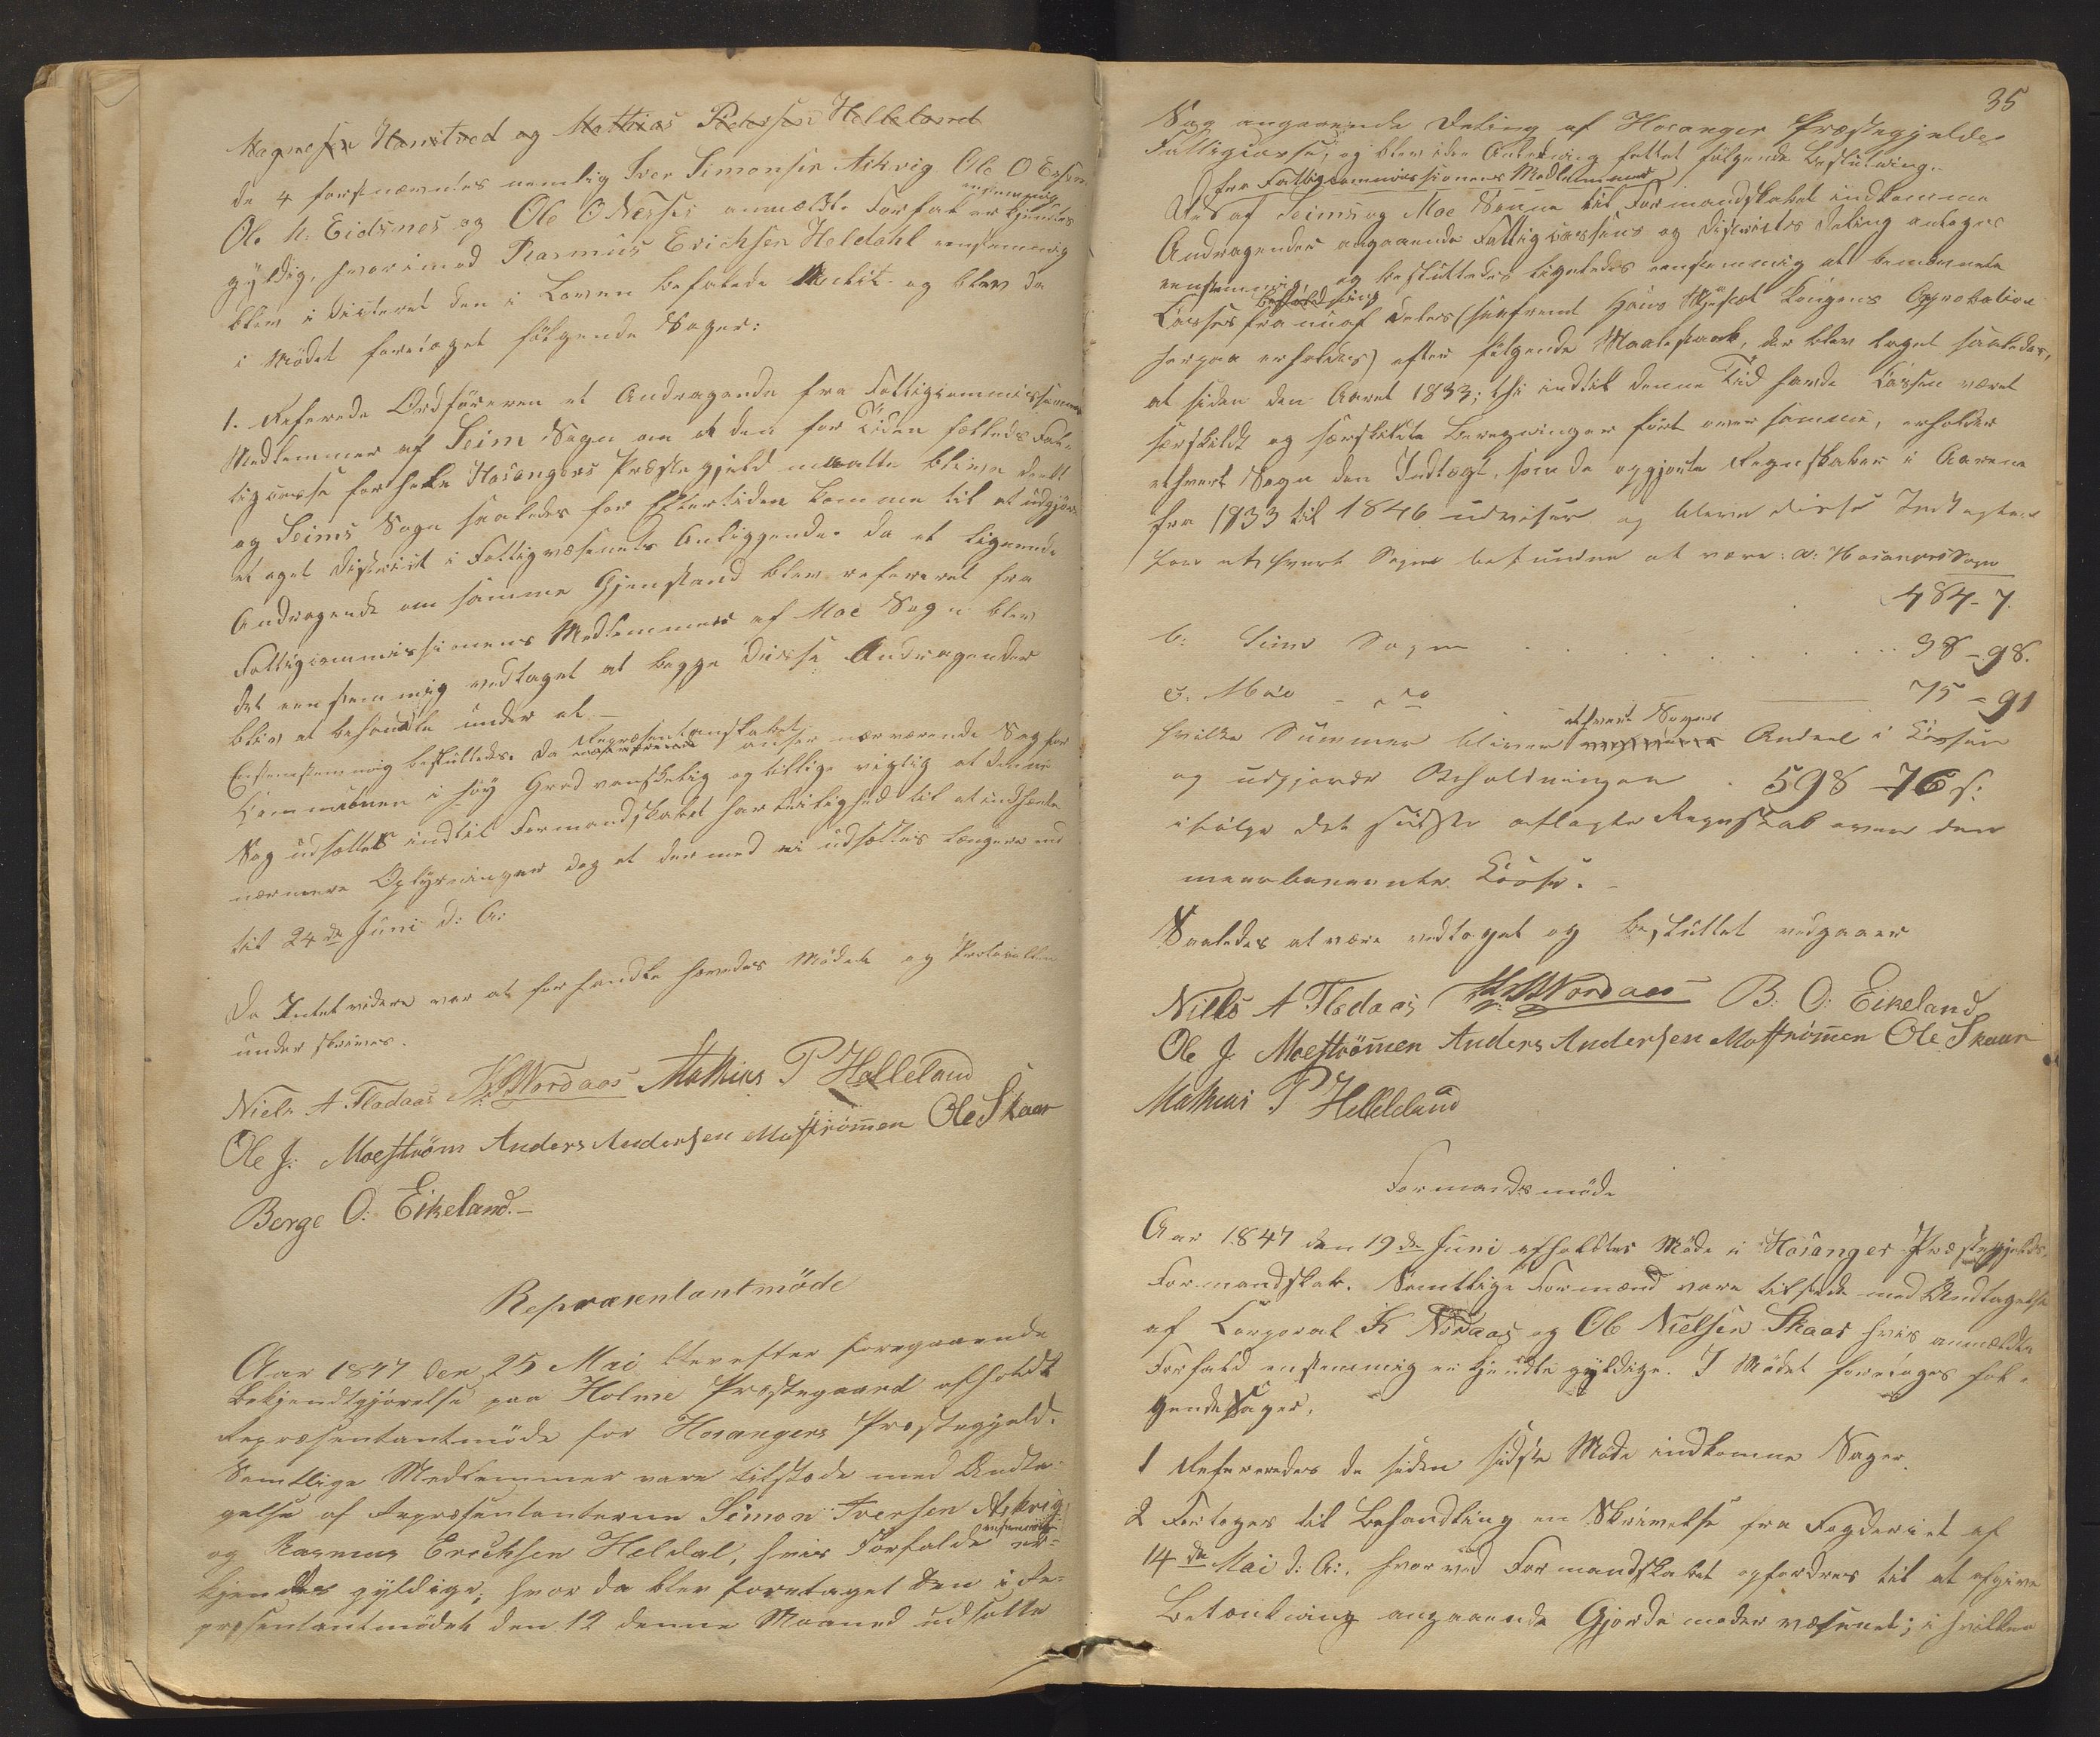 Magnesen Hanstved og Mathias Pedersen Helleland
de 4 førstnævntes nemlig Iver Simonsen Askvig Ole O
eenstemmig
Ole N: Eidsnes og Ole O Nesse anmældte Forfald erkjendtes
gyldig, hvorimod Rasmus Erichsen Heldahl eenstemmig
blev dicteret den i Loven befalede Mulct og blev da
i Mødet foretaget følgende Sager:
1. Refererede Ordføreren et Andragende fra Fattigcommissionens
Medlemmer af Seim Sogn om at den for Tiden fælleds Fat-
tigcasse for hele Hosangers Præstegjeld maatte blive deelt
og Seims Sogn saaledes for Eftertiden komme til at udgjøre
et eget District i Fattigvæsenets Anliggender da et lignende
Andragende om samme Gjenstand blev refereret fra
Fattigcommissionens Medlemmer af Moe Sogn blev
det eenstemmig vedtaget at begge disse Andragender
blev at behandle under et. –
Repræsentantskabet
Eenstemmig besluttedes. Da anser nærværende Sag for
Communen i høy Grad vanskelig og tillige vigtig at denne
Sag udsættes indtil Formandskabet har Leilighed til at indhente
nærmere Oplysninger dog at dermed ei udsættes længere end
til 24de Juni d: A:
Da Intet videre var at forhandle hævedes Mødet og Protocollen
underskrives.
Niels A Fladaas K Nordaas Mathias P Helleland
Ole J: Moestrøm Anders Andersen Mostrømmen Ole Skaar
Børge O: Eikeland. –
Repræsentantmöde
Aar 1847 den 25 Mai blev efter foregaaende
Bekjendtgjørelse paa Holme Præstegaard afholdt
Repræsentantmöde for Hosangers Præstegjeld.
Samtlige Medlemmer vare tilstæde med Undta-
gelse af Repræsentanterne Simon Iversen Askvig
eenstemmig
og Rasmus Erichsen Heldal, hvis Forfalde er-
kjendtes gyldige; hvor da blev foretaget den i Re-
præsentantmödet den 12 denne Maaned udsatte
35
Sag angaaende Deling af Hosanger Præstegjelds
Fattigcasse, og blev i den Anledning fattet følgende Beslutning.
fra Fattigcommissionens Medlemmer
Det af Seims og Moe Sogne til Formandskabet indkomne
Andragender angaaende Fattigcassens og Districtets Deling antages
eenstemmig og besluttedes ligeledes eenstemmig at bemeldte
Beholdning
Casses fra nu af deles (saafremt Hans Majestæt Kongens Approbation
herpaa erholdes) efter følgende Maalestok, der blev taget saaledes,
at siden den Aaret 1833; thi indtil denne Tid havde Cassen været
særskildt og særskildte Beregninger ført over samme, erholder
ethvert Sogn den Indtægt, som de opgjorte Regnskaber i Aarene
fra 1833 til 1846 udviser og bleve disse Indtægter
for ethvert Sogn befunden at være: a: Hosangers Sogn
484 – 7.
b: Seims Sogn . . . . . . . . 38 – 98.
c: Moe – do 75 – 91
ethvert Sogns
hvilke Summer bliver Andeel i Cassen
og udgjorde Beholdningen . 598 – 76 s:
ifølge det sidste aflagte Regnskab over den
meerbenævnte Casse. –
Saaledes at være vedtaget og besluttet vedgaaer
Niels A Fladaas K Nordaas B: O: Eikeland
Ole J Moeströmen Anders Andersen Mostrømen Ole Skaar
Mathias P Helleland
Formandsmöde
Aar 1847 den 19de Juni afholdtes Møde i Hosanger Præstegjelds
Formandskab. Samtlige Formænd vare tilstede med Undtagelse
af Corporal K Nordaas og Ole Nielsen Skaar hvis anmeldte
Forfald enstemmig erkjendte gyldige. I Mødet foretoges føl-
gende Sager.
1 Refereredes de siden sidste Møde indkomne Sager.
2 Foretoges til Behandling en Skrivelse fra Fogderiet af
14de Mai d: A:, hvorved Formandskabet opfordres til at afgive
Betænkning angaaende Gjordemodervæsenet; i hvilken